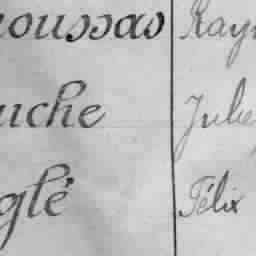 oussas Ray
uche Julie
glé Félix